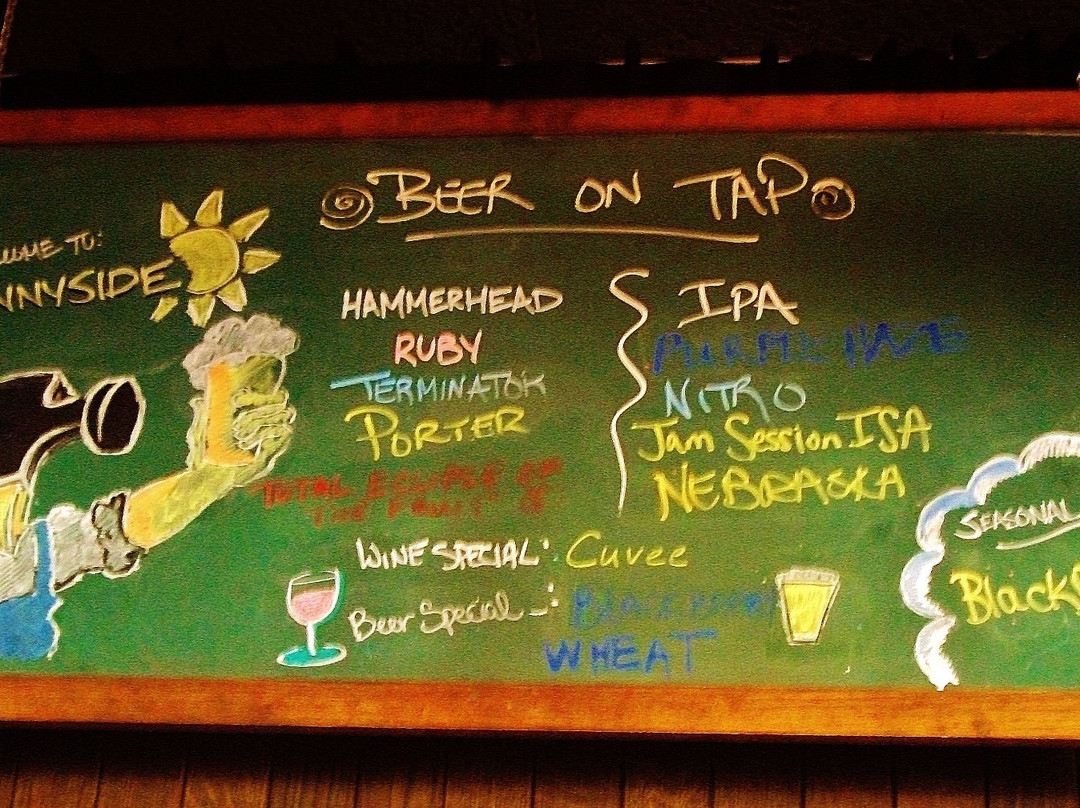 BEER ON TAP
TO:
NNYSIDE
HAMMERHEAD
RUBY
TERMINATOR
PORTER
TOTAL ECLIPSE OF
THE FRUIT
IPA
PURPLE HAZE
NITRO
Jam Session ISA
NEBRASKA
WINE SPECIAL: Cuvee
Beer Special -:
WHEAT
SEASONAL
Black